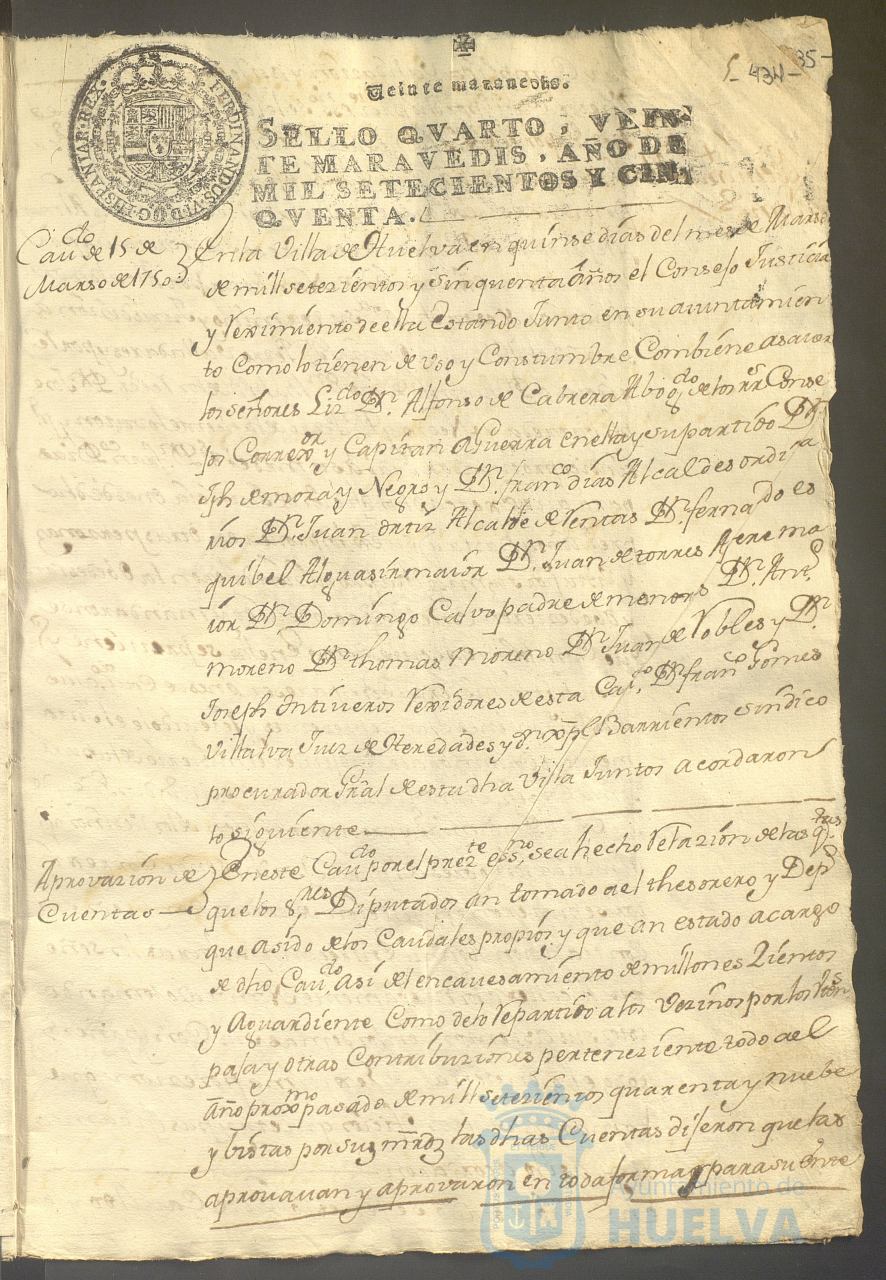 5- 434- 35-
Veinte maravedis.
SELLO QVARTO, VEIN-
TE MARAVEDIS, AÑO DE
MIL SETECIENTOS Y CIN-
QVENTA.
FERDINANDUS VI D G HISPANIAR REX
Cavdo de 15 de
Marso de 1750
En la Villa de Huelva en quinse dias del mes de Marso
de mill setezientos y sinquenta años el Consejo Justicia
y Reximiento de ella estando Junto en su ayuntamien
to Como lo tienen de uso y Constumbre Combiene a saver
los señores Lizdo Dn. Alfonso de Cabrera Abogdo de los Rs Conse
jos Correxor y Capitan a Guerra en ella y su partido Dn
Jph de mora y Negro y Dn. franco dias Alcaldes ordina
rios Dn. Juan ortiz Alcalde de Ventas Dn. fernando es
quibel Alguasil maior Dn. Juan de torres
ior Dn. Domingo Calvo padre de menors Dn. Anto
moreno Dn thomas moreno Dn Juan de Robles y Dn
Joseph Ontiveros Rexidores de esta Dn franco Gomes
Villalva Juez de Heredades y dn xptl Barrientos sindico
procurador Gral de esta dha Villa Juntos acordaron
lo siguiente
Aprovazion de
Cuentas
En este Cavdo por el prezte essno, se a hecho Relazion de las qtas
que los Sres Diputados an tomado a el thesorero y Depo
que a sido de los Caudales propios y que an estado a cargo
de dho Cavdo Asi del encavesamiento de millones Zientos
y Aguardiente Como de lo Repartido a los Vezinos por los
paja y otras Contribuziones perteneziente todo a el
año proxmo pasado de mill setezientos quarenta y nuebe
y bistas por sus mrdz las dhas Cuentas dijeron que las
aprovavan y aprovaron en toda forma y para su
Ayuntamiento de
HUELVA